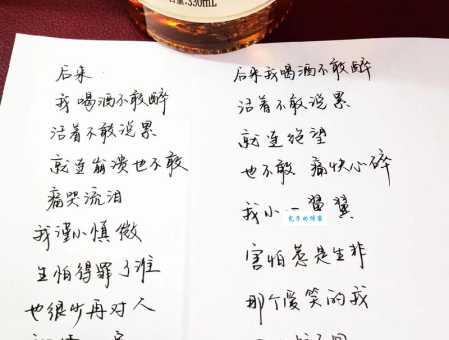 容量:330mL
后来
我喝酒不敢醉
活着不敢说累
就连崩溃也不敢
痛哭流泪
我谨小慎微
生怕得罪了谁
也很少再对人
后来我喝酒不敢醉
活着不敢说累
就连绝望
也不敢 痛快心碎
我小 一翼翼
害怕惹是生非
那个爱笑的我